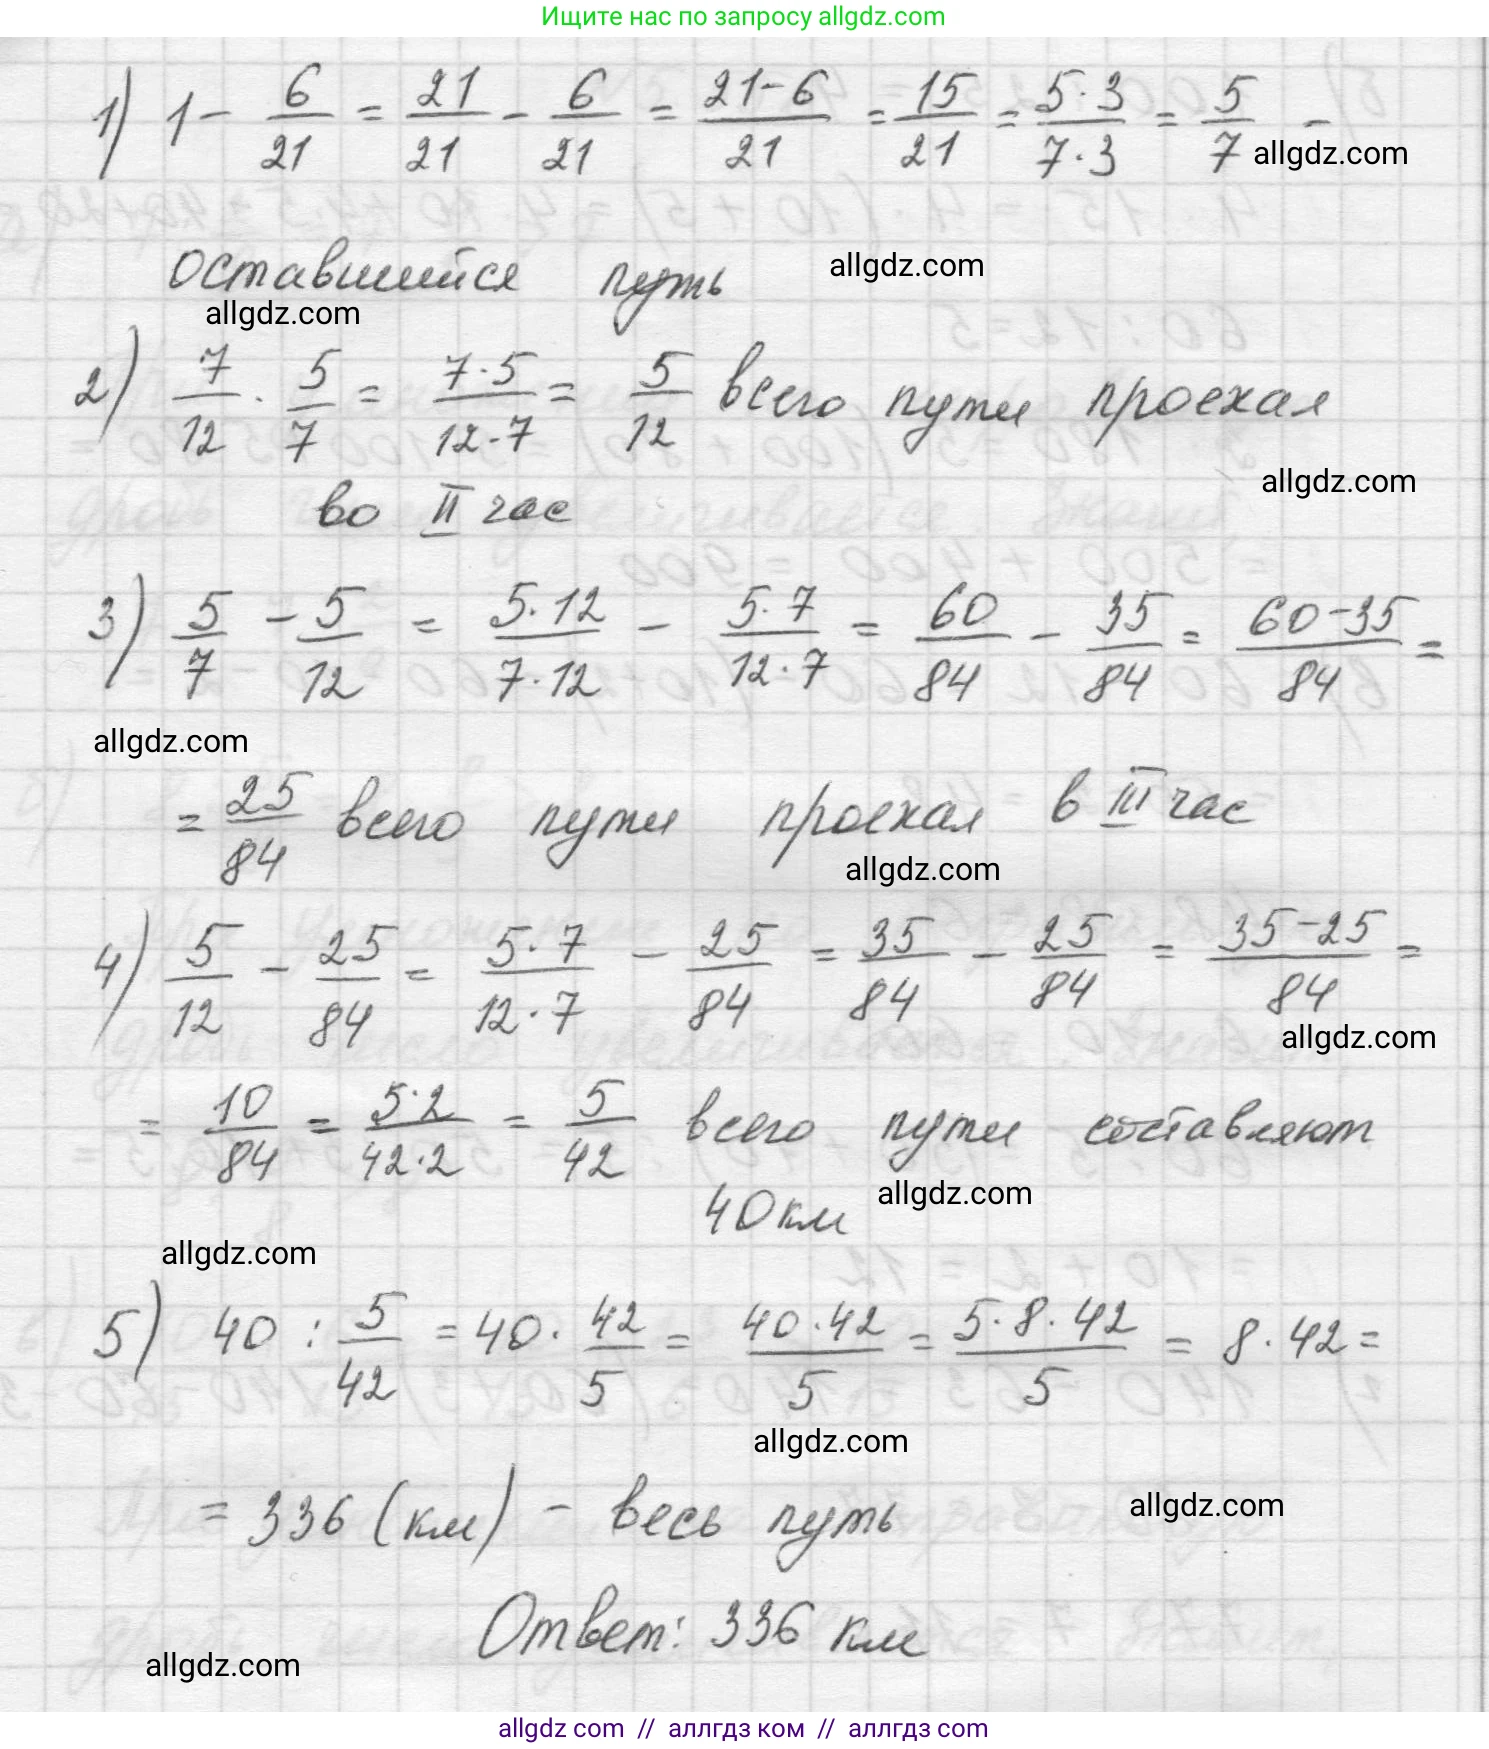 Ищите нас по запросу allgdz.com
1) 1 - 6/21 = 21/21 - 6/21 = (21-6)/21 = 15/21 = (5·3)/(7·3) = 5/7 -
allgdz.com
оставшийся путь
allgdz.com
allgdz.com
2) 7/12 · 5/7 = (7·5)/(12·7) = 5/12 всего пути проехал
allgdz.com
во II час
3) 5/7 - 5/12 = (5·12)/(7·12) - (5·7)/(12·7) = 60/84 - 35/84 = (60-35)/84 =
allgdz.com
= 25/84 всего пути проехал в III час
allgdz.com
4) 5/12 - 25/84 = (5·7)/(12·7) - 25/84 = 35/84 - 25/84 = (35-25)/84 =
allgdz.com
= 10/84 = (5·2)/(42·2) = 5/42 всего пути составляют
40 км
allgdz.com
allgdz.com
5) 40 : 5/42 = 40 · 42/5 = (40·42)/5 = (5·8·42)/5 = 8·42 =
allgdz.com
= 336 (км) - весь путь
allgdz.com
Ответ: 336 км
allgdz.com
allgdz com // аллгдз ком // аллгдз com